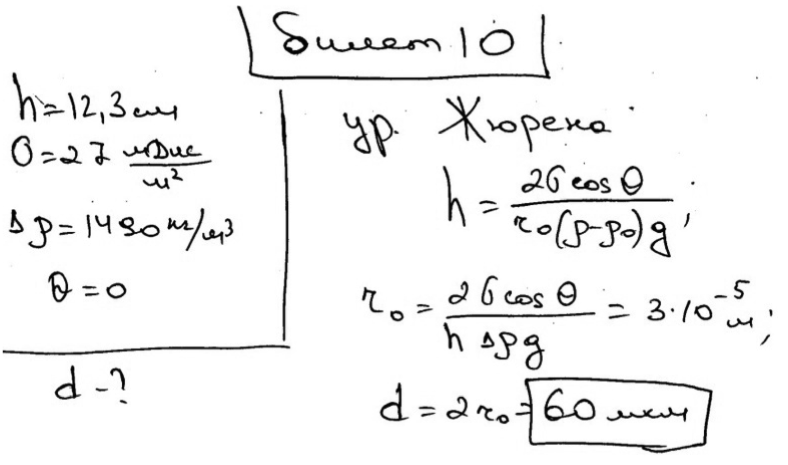 Билет 10
h=12,3 см
σ=27 мДж/м²
Δρ=1490 кг/м³
θ=0
d-?
ур. Жюрена
h = 2σ cos θ / r₀(ρ-ρ₀)g ;
r₀ = 2σ cos θ / h Δρg = 3·10⁻⁵ м ;
d = 2r₀ = 60 мкм